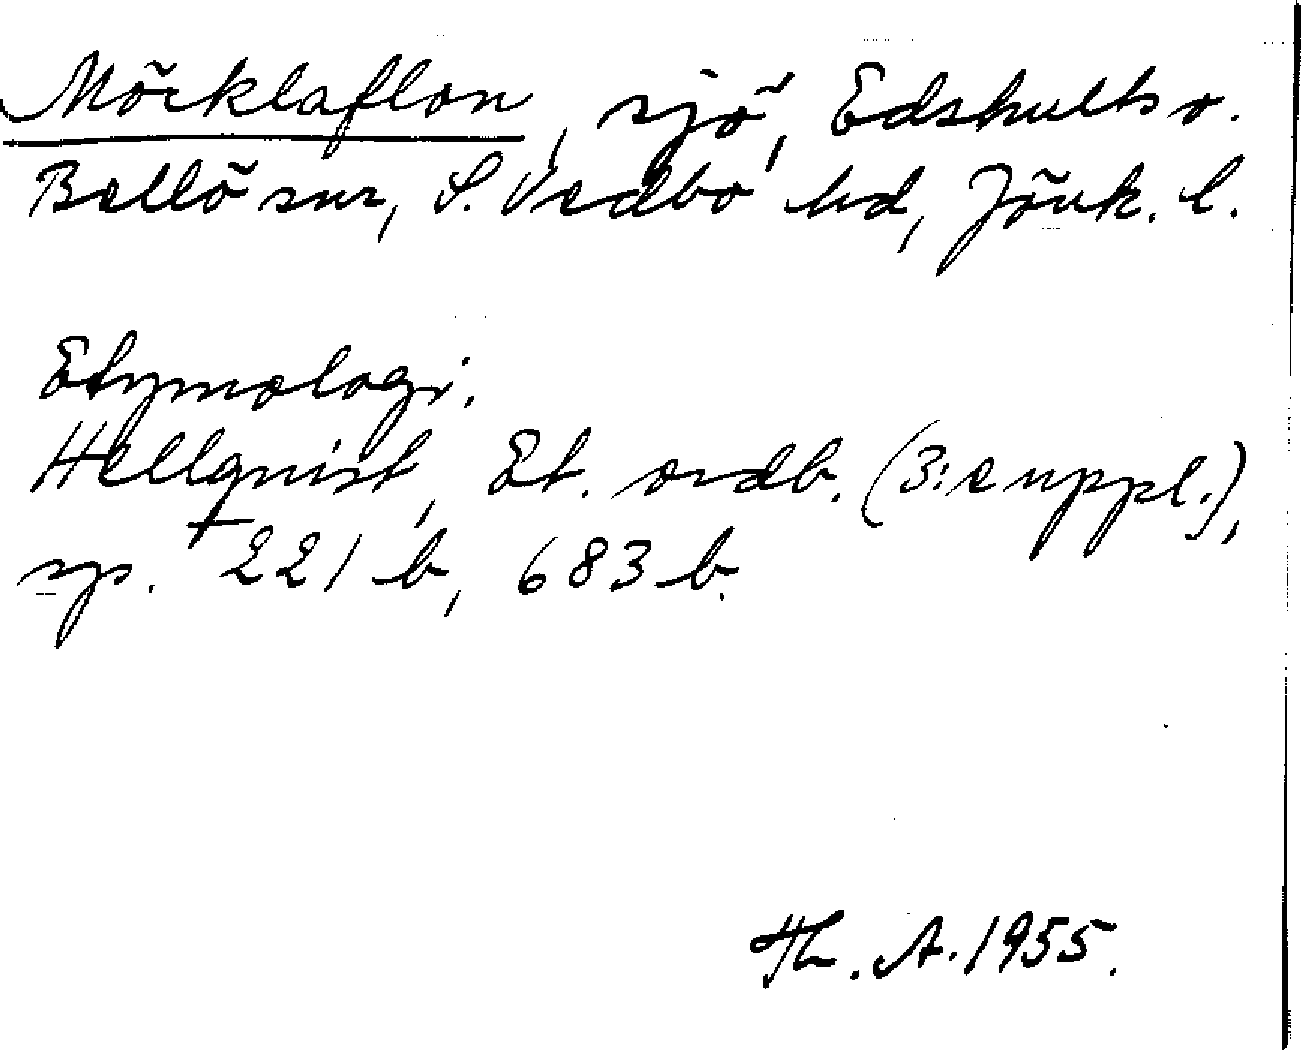 Möcklaflon, sjö, Edshults o.
Bellö snr, S. Vedbo hd, Jönk. l.
Etymologi.
Hellquist, Et. ordb. (3:e uppl.),
sp. 221 b, 683 b.
Th. A. 1955.